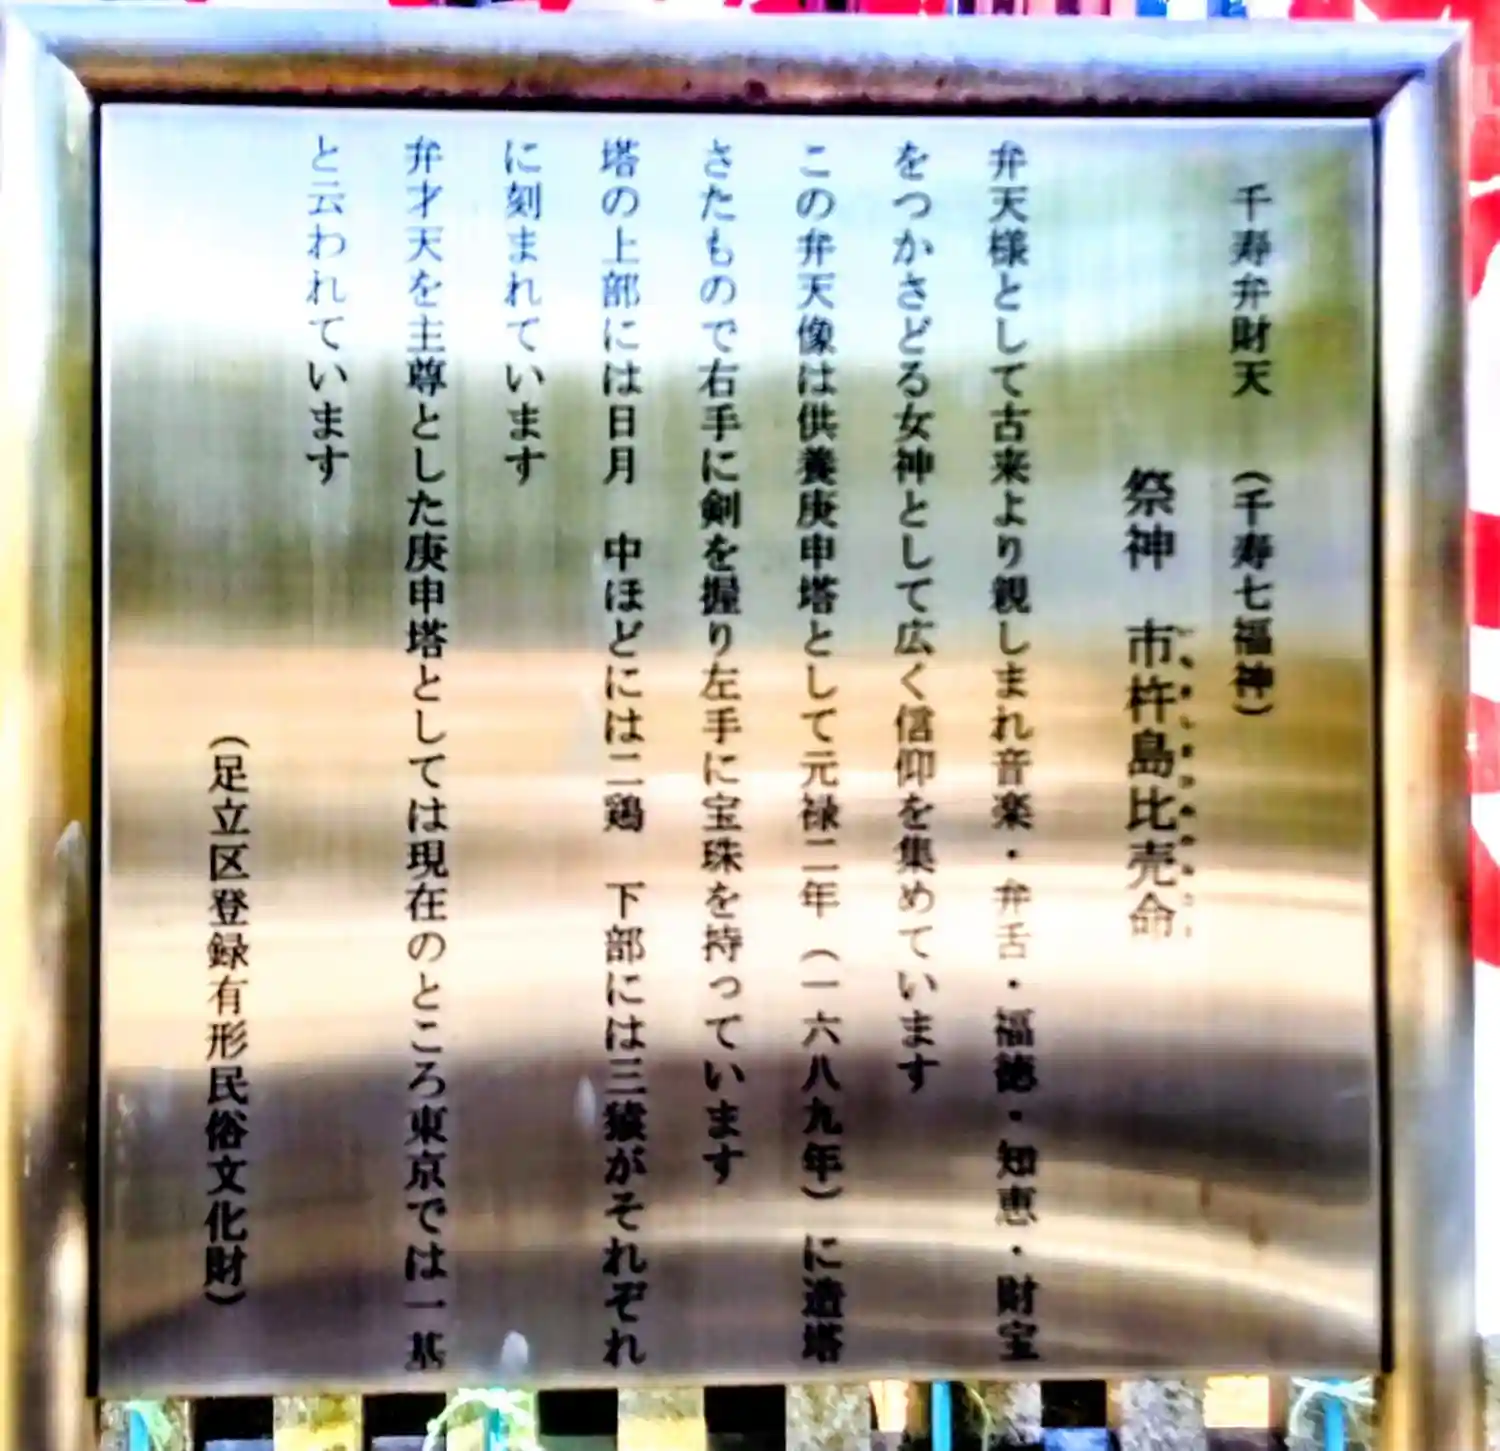 千寿弁財天　（千寿七福神）
祭神　市杵島比売命
弁天様として古来より親しまれ音楽・弁舌・福徳・知恵・財宝
をつかさどる女神として広く信仰を集めています
この弁天像は供養庚申塔として元禄二年（一六八九年）に造塔
さたもので右手に剣を握り左手に宝珠を持っています
塔の上部には日月　中ほどには二鶏　下部には三猿がそれぞれ
に刻まれています
弁才天を主尊とした庚申塔としては現在のところ東京では一基
と云われています
（足立区登録有形民俗文化財）